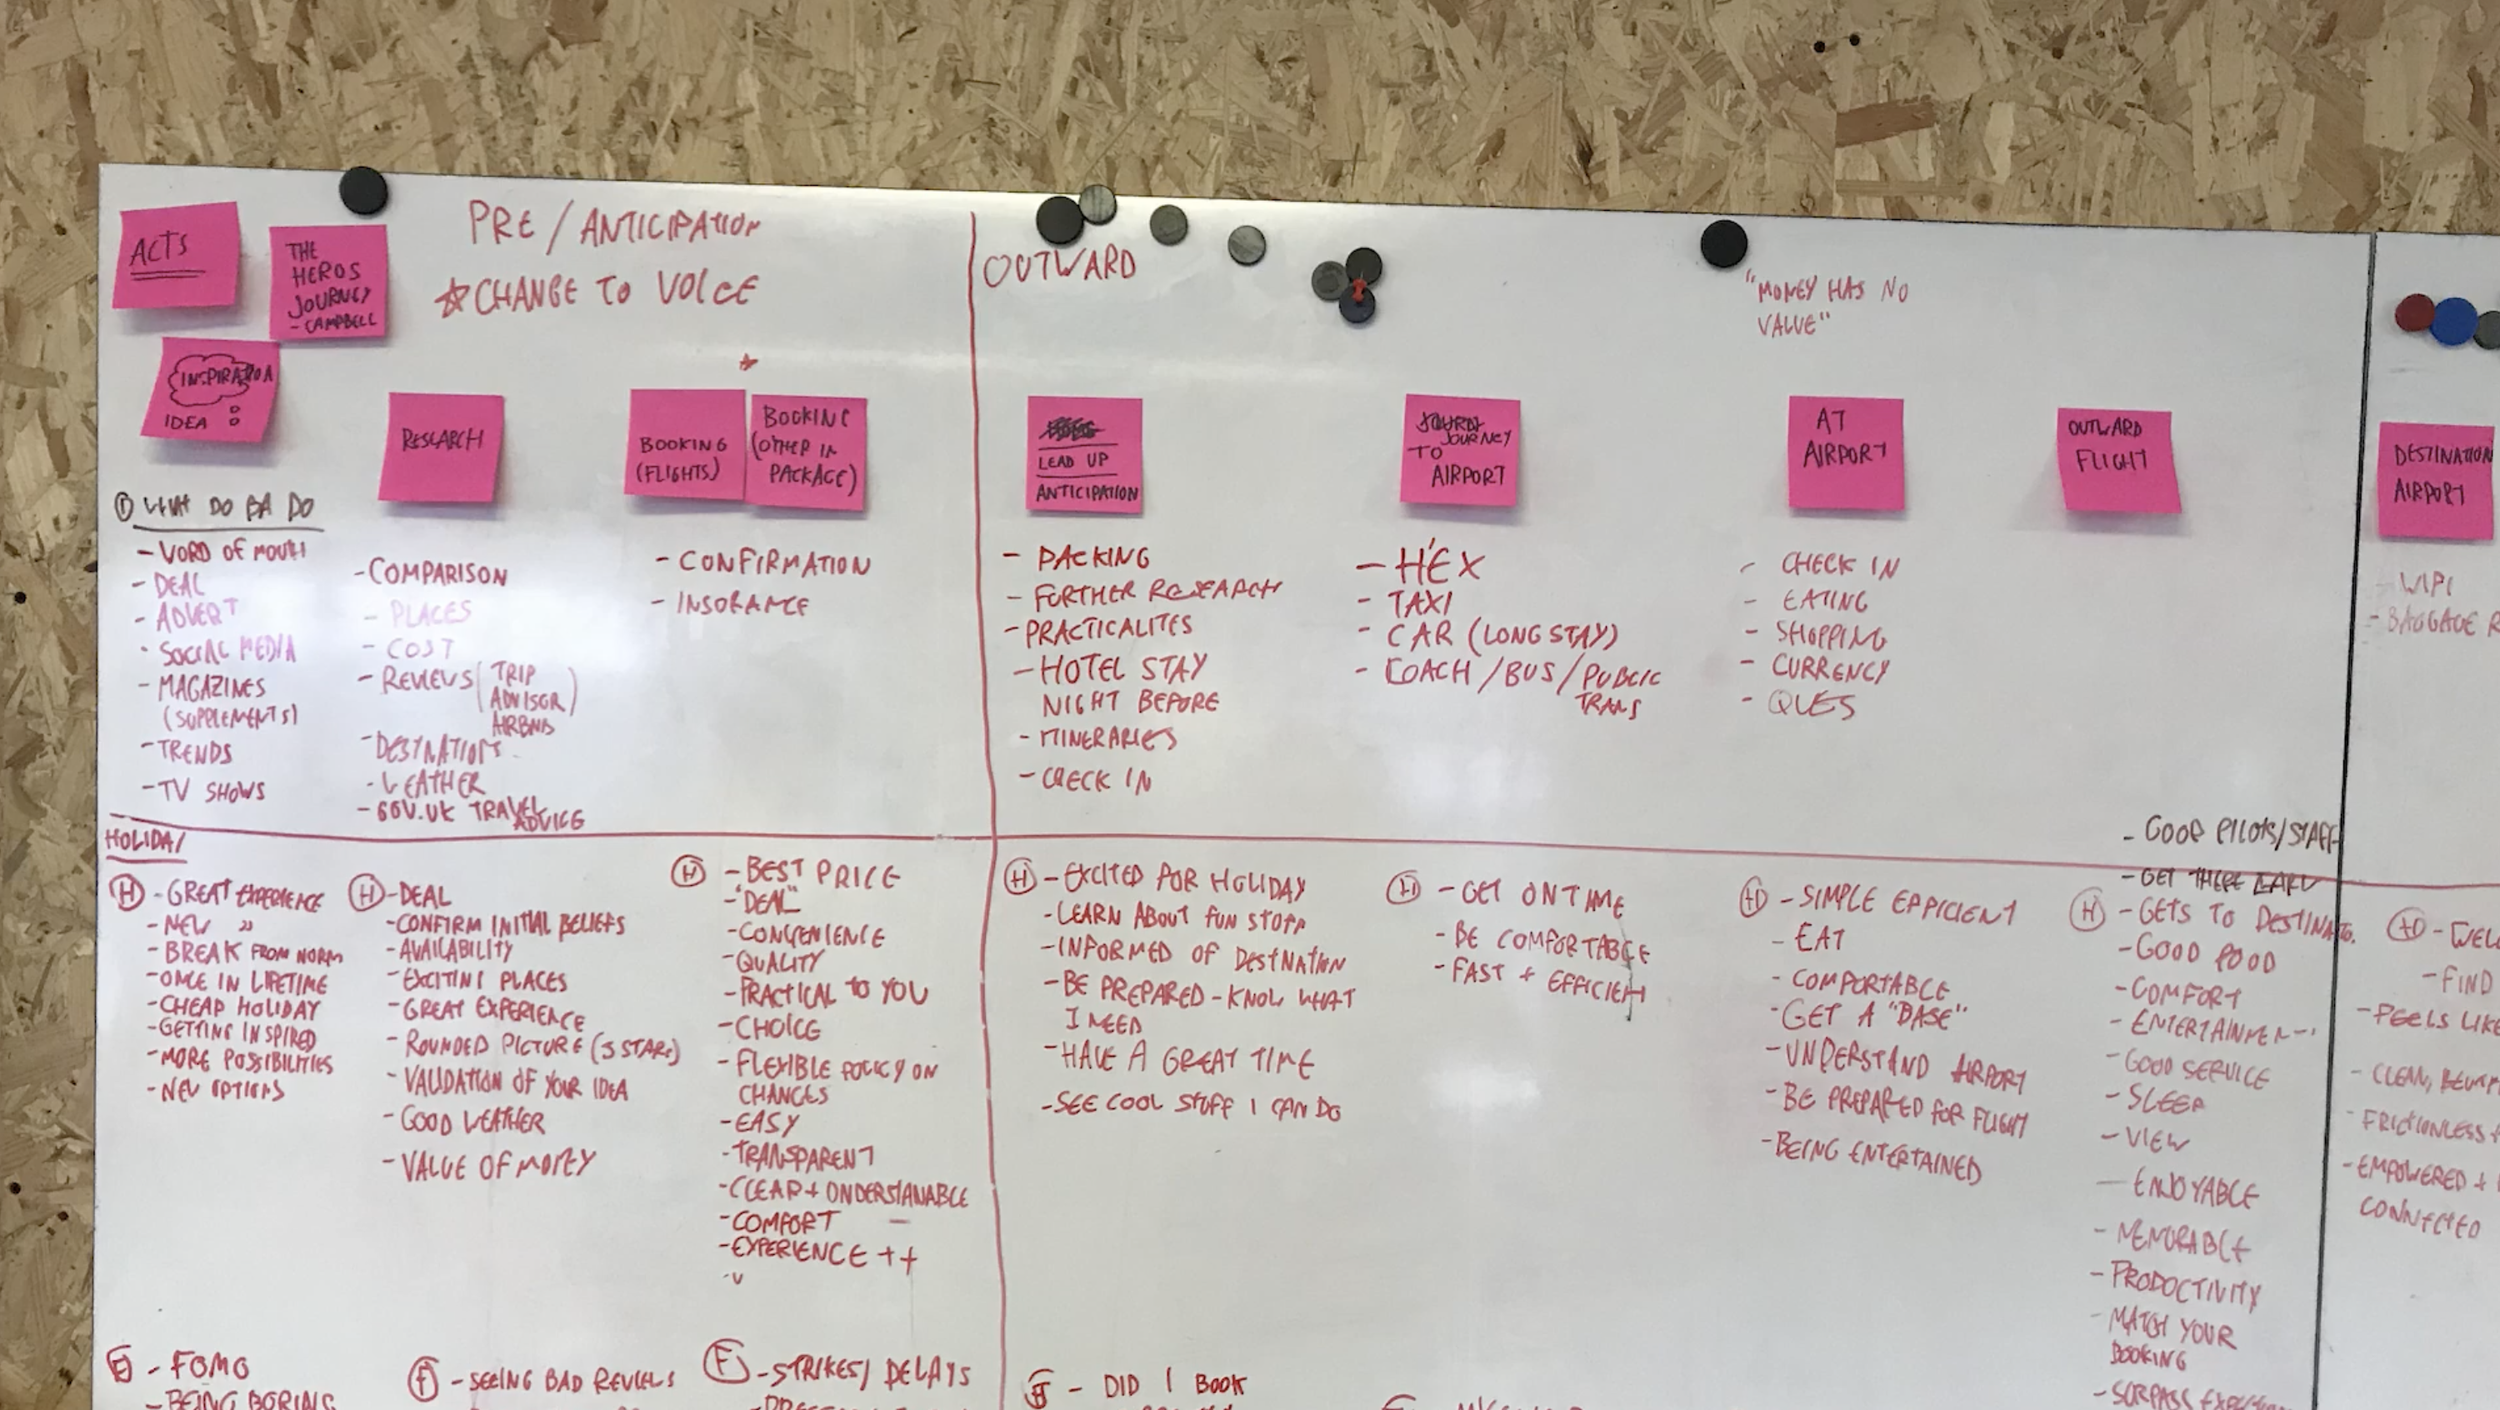 ACTS
THE
HEROS
JOURNEY
- CAMPBELL
PRE / ANTICIPATION
☆ CHANGE TO VOICE
OUTWARD
"MONEY HAS NO
VALUE"
INSPIRATION
IDEA
RESEARCH
BOOKING
(FLIGHTS)
BOOKING
(OTHER IN
PACKAGE)
LEAD UP
ANTICIPATION
JOURNEY
TO
AIRPORT
AT
AIRPORT
OUTWARD
FLIGHT
DESTINATION
AIRPORT
① WHAT DO BA DO
- WORD OF MOUTH
- DEAL
- ADVERT
- SOCIAL MEDIA
- MAGAZINES
(SUPPLEMENTS)
- TRENDS
- TV SHOWS
- COMPARISON
- PLACES
- COST
- REVIEWS (TRIP
ADVISOR)
AIRBNB
- DESTINATIONS
- WEATHER
- GOV.UK TRAVEL
ADVICE
- CONFIRMATION
- INSURANCE
- PACKING
- FURTHER RESEARCH
- PRACTICALITES
- HOTEL STAY
NIGHT BEFORE
- ITINERARIES
- CHECK IN
- HEX
- TAXI
- CAR (LONG STAY)
- COACH / BUS / PUBLIC
TRANS
- CHECK IN
- EATING
- SHOPPING
- CURRENCY
- QUES
- WIFI
- BAGGAGE R
HOLIDAY
Ⓗ - GREAT EXPERIENCE
- NEW "
- BREAK FROM NORM
- ONCE IN LIFETIME
- CHEAP HOLIDAY
- GETTING INSPIRED
- MORE POSSIBILITIES
- NEW OPTIONS
Ⓗ - DEAL
- CONFIRM INITIAL BELIEFS
- AVAILABILITY
- EXCITING PLACES
- GREAT EXPERIENCE
- ROUNDED PICTURE (5 STARS)
- VALIDATION OF YOUR IDEA
- GOOD WEATHER
- VALUE OF MONEY
Ⓗ - BEST PRICE
- "DEAL"
- CONVENIENCE
- QUALITY
- PRACTICAL TO YOU
- CHOICE
- FLEXIBLE POLICY ON
CHANGES
- EASY
- TRANSPARENT
- CLEAR + UNDERSTANABLE
- COMFORT
- EXPERIENCE ++
Ⓗ - EXCITED FOR HOLIDAY
- LEARN ABOUT FUN STUFF
- INFORMED OF DESTNATION
- BE PREPARED - KNOW WHAT
I NEED
- HAVE A GREAT TIME
- SEE COOL STUFF I CAN DO
Ⓗ - GET ON TIME
- BE COMFORTABLE
- FAST + EFFICIENT
Ⓗ - SIMPLE EFFICIENT
- EAT
- COMFORTABLE
- GET A "BASE"
- UNDERSTAND AIRPORT
- BE PREPARED FOR FLIGHT
- BEING ENTERTAINED
- GOOD PILOTS/STAFF
- GET THERE EARLY
Ⓗ - GETS TO DESTINATO.
- GOOD FOOD
- COMFORT
- ENTERTAINMENT
- GOOD SERVICE
- SLEEP
- VIEW
- ENJOYABLE
- MEMORABLE
- PRODUCTIVITY
- MATCH YOUR
BOOKING
- SURPASS
Ⓗ - WEL
- FIND
- FEELS LIKE
- CLEAN,
- FRICTIONLESS +
- EMPOWERED +
CONNECTED
Ⓕ - FOMO
- BEING BORING
Ⓕ - SEEING BAD REVIEWS
Ⓕ - STRIKES/ DELAYS
- DID I BOOK